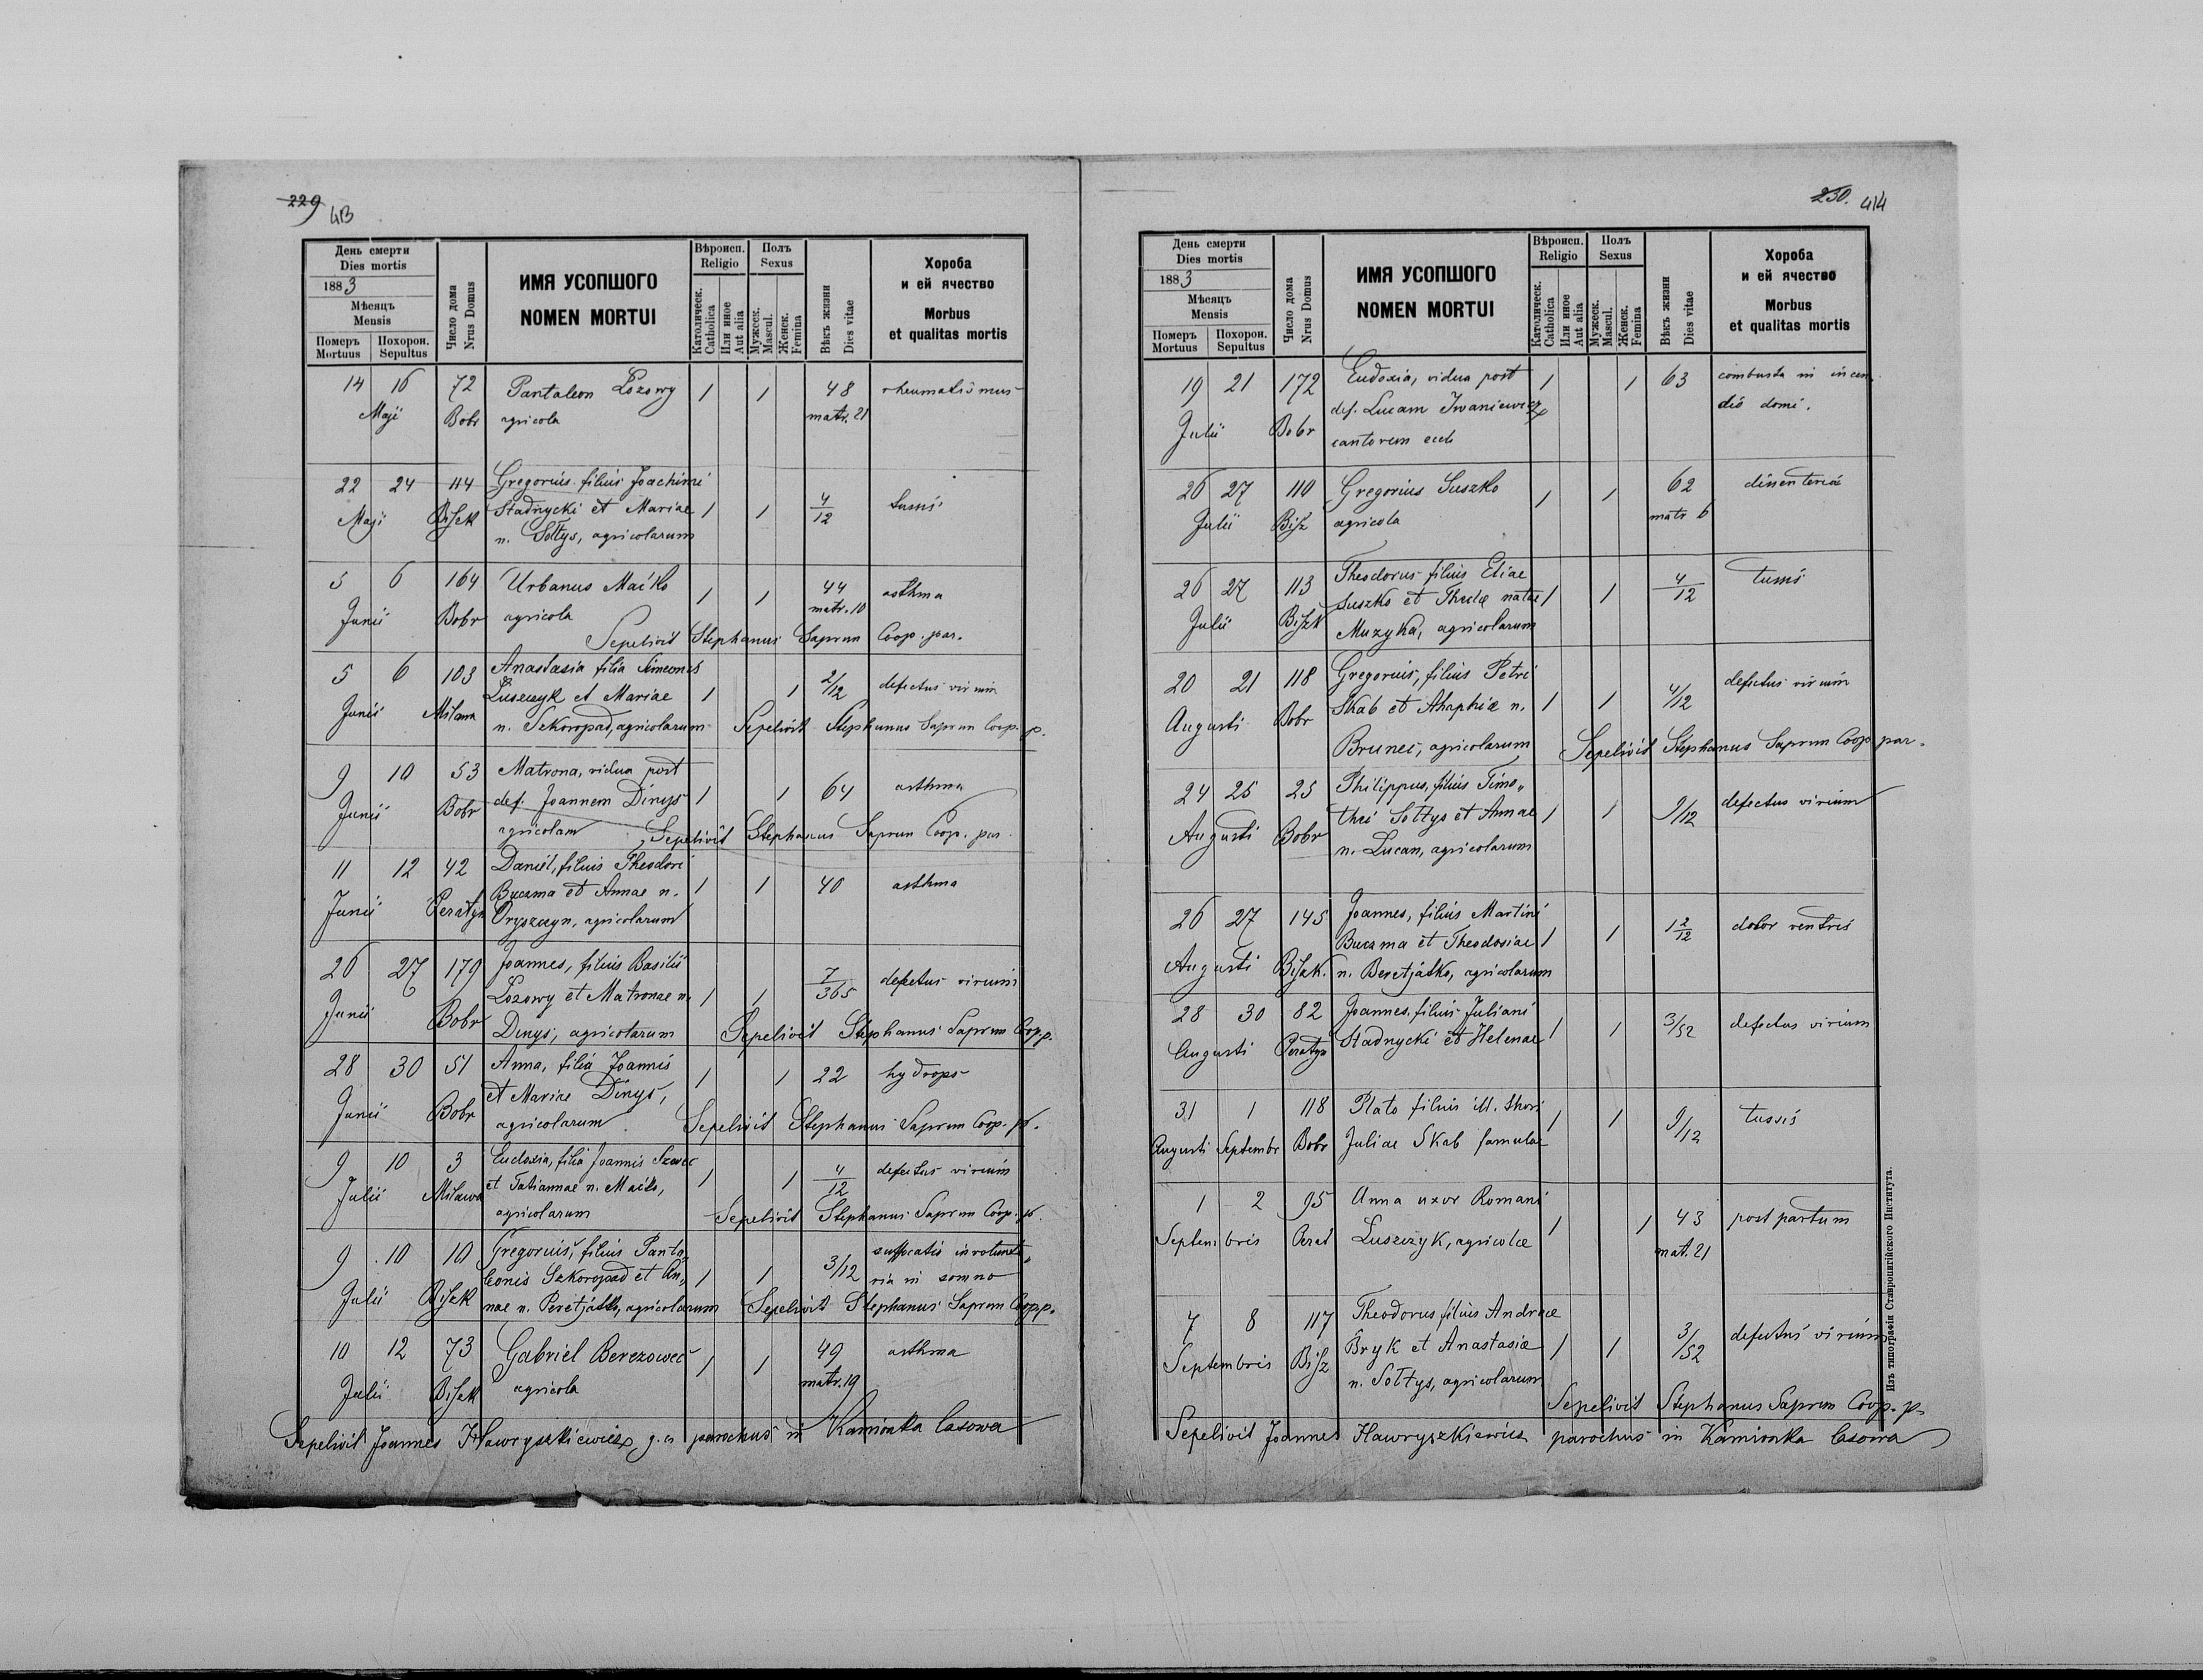 229 413
День смерти
Dies mortis
1883
Мѣсяцъ
Mensis
Померъ
Mortuus
Похорон.
Sepultus
Число дома
Nrus Domus
ИМЯ УСОПШОГО
NOMEN MORTUI
Вѣроисп.
Religio
Католическ.
Catholica
Или иное
Aut alia
Полъ
Sexus
Мужеск.
Mascul.
Женск.
Femina
Вѣкъ жизни
Dies vitae
Хороба
и ей ячество
Morbus
et qualitas mortis
14 16 72 Pantaleon Łozowy 1 1 48 rheumatismus
Maji Bobr agricola matr. 21
22 24 114 Gregorius filius Joachimi
Stadnycki et Mariae 1 1 4/12 tussis
Maji Biszk n. Sołtys, agricolarum
5 6 164 Urbanus Maćko 1 1 44 asthma
Junii Bobr agricola matr. 10
Sepelivit Stephanus Saprun Coop. par.
5 6 103 Anastasia filia Simeonis
Łuszczyk et Mariae 1 1 2/12 defectus virium
Junii Milawa n. Szkoropad, agricolarum Sepelivit Stephanus Saprun Coop. p.
9 10 53 Matrona, vidua post
Junii Bobr def. Joannem Dinys 1 1 64 asthma
agricolam Sepelivit Stephanus Saprun Coop. par.
11 12 42 Daniel, filius Theodori
Buczma et Annae n. 1 1 40 asthma
Junii Peratyn Oryszczyn, agricolarum
26 27 179 Joannes, filius Basilii
Łozowy et Matronae n. 1 1 7/365 defectus virium
Junii Bobr Dinys, agricolarum Sepelivit Stephanus Saprun Coop p.
28 30 51 Anna, filia Joannis 1 1 22 hydrops
Junii Bobr et Mariae Dinys,
agricolarum Sepelivit Stephanus Saprun Coop. p.
9 10 3 Eudoxia, filia Joannis Szwec
et Tatiannae n. Maćko, 1 1 4/12 defectus virium
Julii Milawa agricolarum Sepelivit Stephanus Saprun Coop. p.
9 10 10 Gregorius, filius Panta„
leonis Szkoropad et An„ 1 1 3/12 suffocatio involunta„
ria in somno
Julii Biszk nae n. Peretjatko, agricolarum Sepelivit Stephanus Saprun Coop p.
10 12 73 Gabriel Berezoweć 1 1 49 asthma
Julii Biszk agricola matr. 19
Sepelivit Joannes Hawryszkiewicz, g. c. parochus in Kamionka lasowa
230. 414
День смерти
Dies mortis
1883
Мѣсяцъ
Mensis
Померъ
Mortuus
Похорон.
Sepultus
Число дома
Nrus Domus
ИМЯ УСОПШОГО
NOMEN MORTUI
Вѣроисп.
Religio
Католическ.
Catholica
Или иное
Aut alia
Полъ
Sexus
Мужеск.
Mascul.
Женск.
Femina
Вѣкъ жизни
Dies vitae
Хороба
и ей ячество
Morbus
et qualitas mortis
19 21 172 Eudoxia, vidua post 1 1 63 combusta in incen
Julii Bobr def. Lucam Iwaniewicz dio domi.
cantorem eccl.
26 27 110 Gregorius Suszko 1 1 62 disenteria
Julii Bisz agricola matr 6
26 27 113 Theodorus filius Eliae
Suszko et Theclae natae 1 1 4/12 tussis
Julii Biszk Muzyka, agricolarum
20 21 118 Gregorius, filius Petri
Skab et Ahaphiae n. 1 1 4/12 defectus virium
Augusti Bobr Bruneć, agricolarum Sepelivit Stephanus Saprun Coop par.
24 25 25 Philippus, filius Timo„
thei Sołtys et Annae 1 1 9/12 defectus virium
Augusti Bobr n. Lucan, agricolarum
26 27 145 Joannes, filius Martini
Buczma et Theodosiae 1 1 1 2/12 dolor ventris
Augusti Biszk. n. Peretjatko, agricolarum
28 30 82 Joannes, filius Juliani
Augusti Peratyn Stadnycki et Helenae 1 1 3/52 defectus virium
31 1 118 Plato filius ill. thori 1 1 9/12 tussis
Augusti Septembr Bobr Juliae Skab famulae
1 2 95 Anna uxor Romani
Septembris Perat Łuszczyk, agricolae 1 1 43 post partum
mat. 21
7 8 117 Theodorus filius Andreae
Bryk et Anastasiae 1 1 3/52 defectus virium
Septembris Bisz n. Sołtys, agricolarum
Sepelivit Stephanus Saprun Coop. p.
Sepelivit Joannes Hawryszkiewicz parochus in Kamionka lasowa
Изъ типографіи Ставропигійского Института.